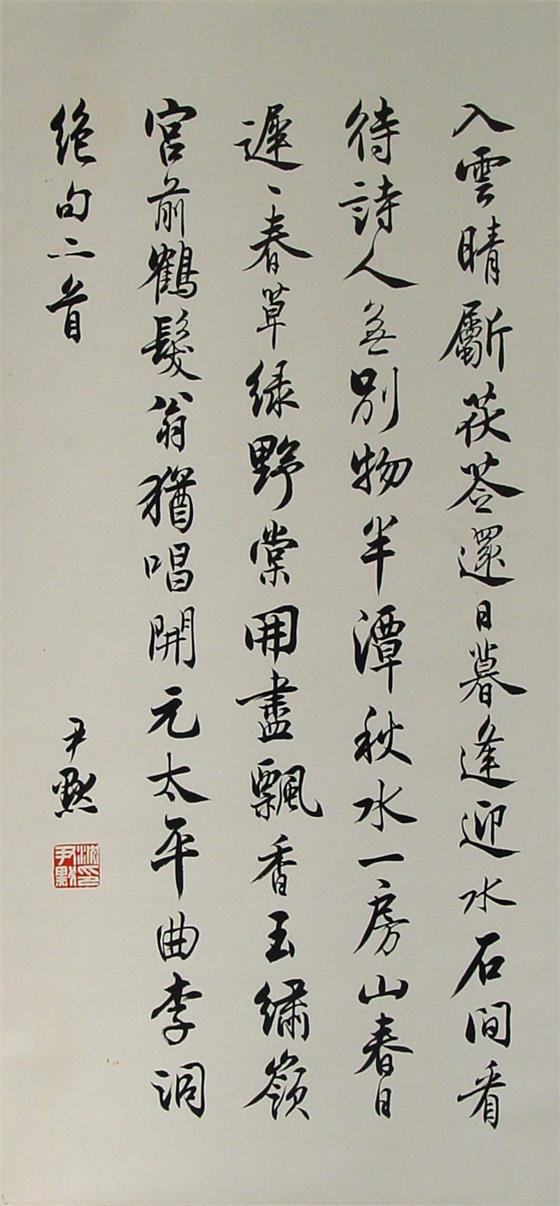 入雲晴斸茯苓還日暮逢迎水石間看
待詩人無別物半潭秋水一房山春日
遲〻春草緑野棠開盡飄香玉繡嶺
宮前鶴髮翁猶唱開元太平曲李洞
絕句二首
尹默
沈印尹默